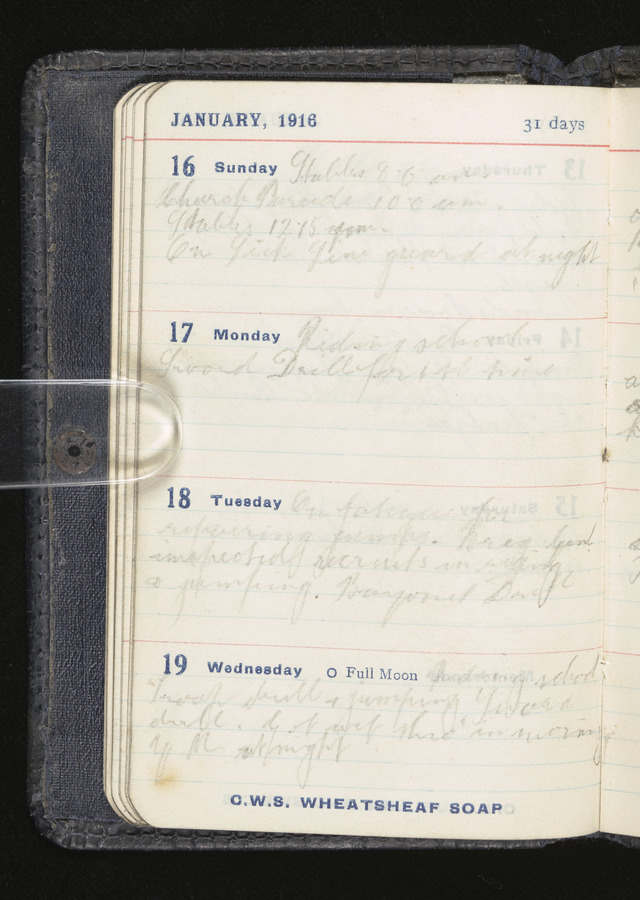 JANUARY, 1916 31 days
16 Sunday Stables 8.0 am.
Church Parade 10 0 am.
Stables 12 15 pm.
On Sick Line guard at night
17 Monday Riding school
Sword Drill for 1st time
18 Tuesday On fatigue for
repairing jumps. Brig. Genl
inspected recruits in riding
& jumping. Bayonet Drill
19 Wednesday O Full Moon Riding school
Troop drill & jumping Sword
drill. in morning
Y M at night
C.W.S. WHEATSHEAF SOAP